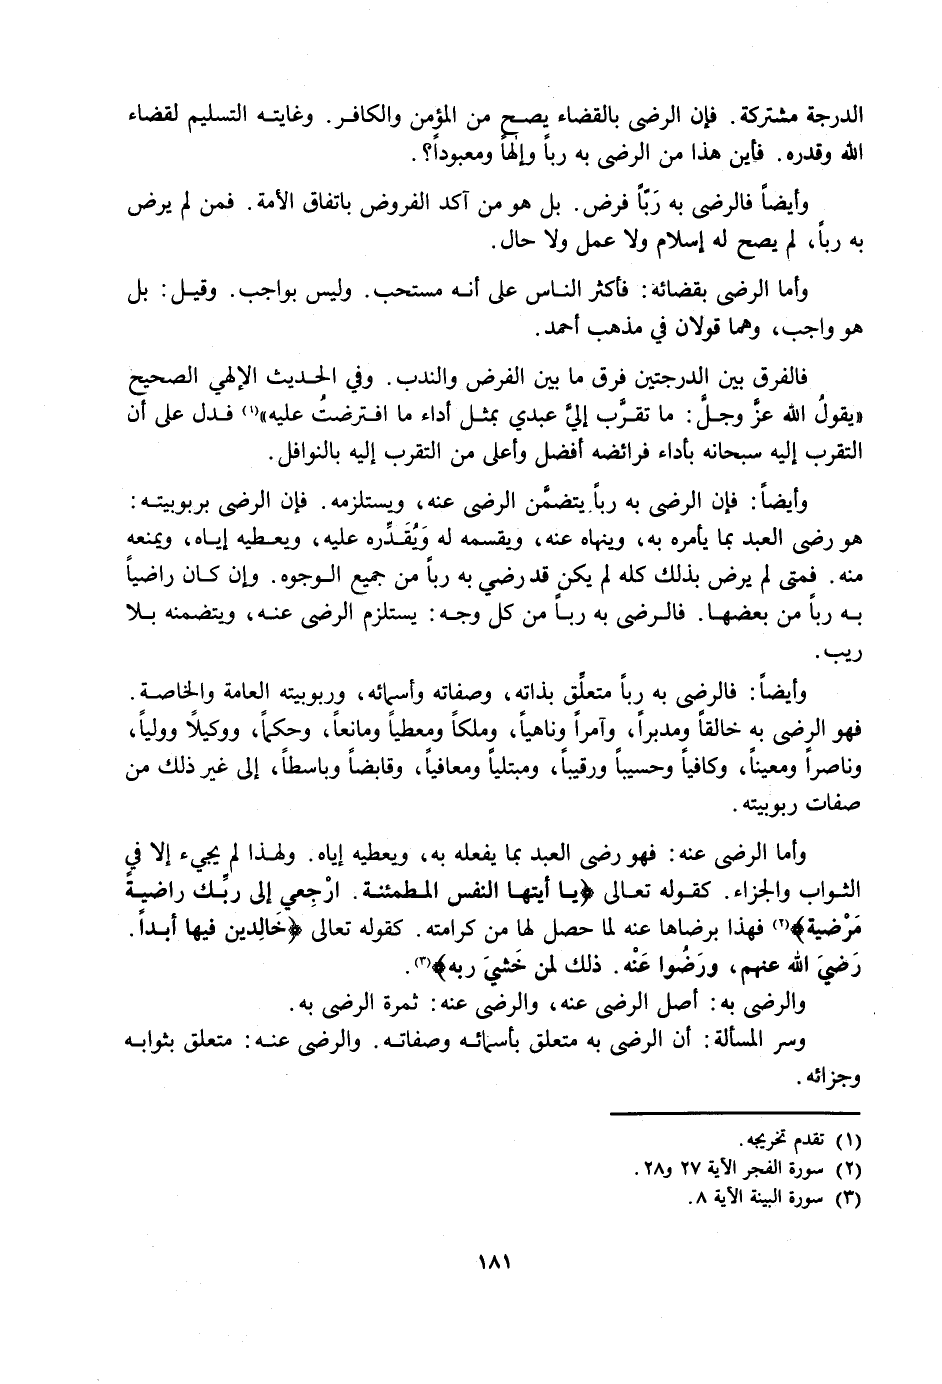 الدرجة مشتركة. فإن الرضى بالقضاء يصح من المؤمن والكافر. وغايته التسليم لقضاء
الله وقدره. فأين هذا من الرضى به رباً وإلهاً ومعبوداً؟.
وأيضاً فالرضى به رَبّاً فرض. بل هو من آكد الفروض باتفاق الأمة. فمن لم يرض
به رباً، لم يصح له إسلام ولا عمل ولا حال.
وأما الرضى بقضائه: فأكثر الناس على أنه مستحب. وليس بواجب. وقيل: بل
هو واجب، وهما قولان في مذهب أحمد.
فالفرق بين الدرجتين فرق ما بين الفرض والندب. وفي الحديث الإلهي الصحيح
«يقولُ الله عزَّ وجلَّ: ما تقرَّب إليَّ عبدي بمثل أداء ما افترضتُ عليه»(١) فدل على أن
التقرب إليه سبحانه بأداء فرائضه أفضل وأعلى من التقرب إليه بالنوافل.
وأيضاً: فإن الرضى به رباً يتضمَّن الرضى عنه، ويستلزمه. فإن الرضى بربوبيته:
هو رضى العبد بما يأمره به، وينهاه عنه، ويقسمه له وَيُقَدِّره عليه، ويعطيه إياه، ويمنعه
منه. فمتى لم يرض بذلك كله لم يكن قد رضي به رباً من جميع الوجوه. وإن كان راضياً
به رباً من بعضها. فالرضى به رباً من كل وجه: يستلزم الرضى عنه، ويتضمنه بلا
ريب.
وأيضاً: فالرضى به رباً متعلِّق بذاته، وصفاته وأسمائه، وربوبيته العامة والخاصة.
فهو الرضى به خالقاً ومدبراً، وآمراً وناهياً، وملكاً ومعطياً ومانعاً، وحكماً، ووكيلًا وولياً،
وناصراً ومعيناً، وكافياً وحسيباً ورقيباً، ومبتلياً ومعافياً، وقابضاً وباسطاً، إلى غير ذلك من
صفات ربوبيته.
وأما الرضى عنه: فهو رضى العبد بما يفعله به، ويعطيه إياه. ولهذا لم يجيء إلا في
الثواب والجزاء. كقوله تعالى ﴿يا أيتها النفس المطمئنة. ارْجِعي إلى ربِّك راضيةً
مَرْضية﴾(٢) فهذا برضاها عنه لما حصل لها من كرامته. كقوله تعالى ﴿خَالِدين فيها أبداً.
رَضيَ الله عنهم، ورَضُوا عَنْه. ذلك لمن خَشيَ ربه﴾(٣).
والرضى به: أصل الرضى عنه، والرضى عنه: ثمرة الرضى به.
وسر المسألة: أن الرضى به متعلق بأسمائه وصفاته. والرضى عنه: متعلق بثوابه
وجزائه.
(١) تقدم تخريجه.
(٢) سورة الفجر الآية ٢٧ و٢٨.
(٣) سورة البينة الآية ٨.
١٨١